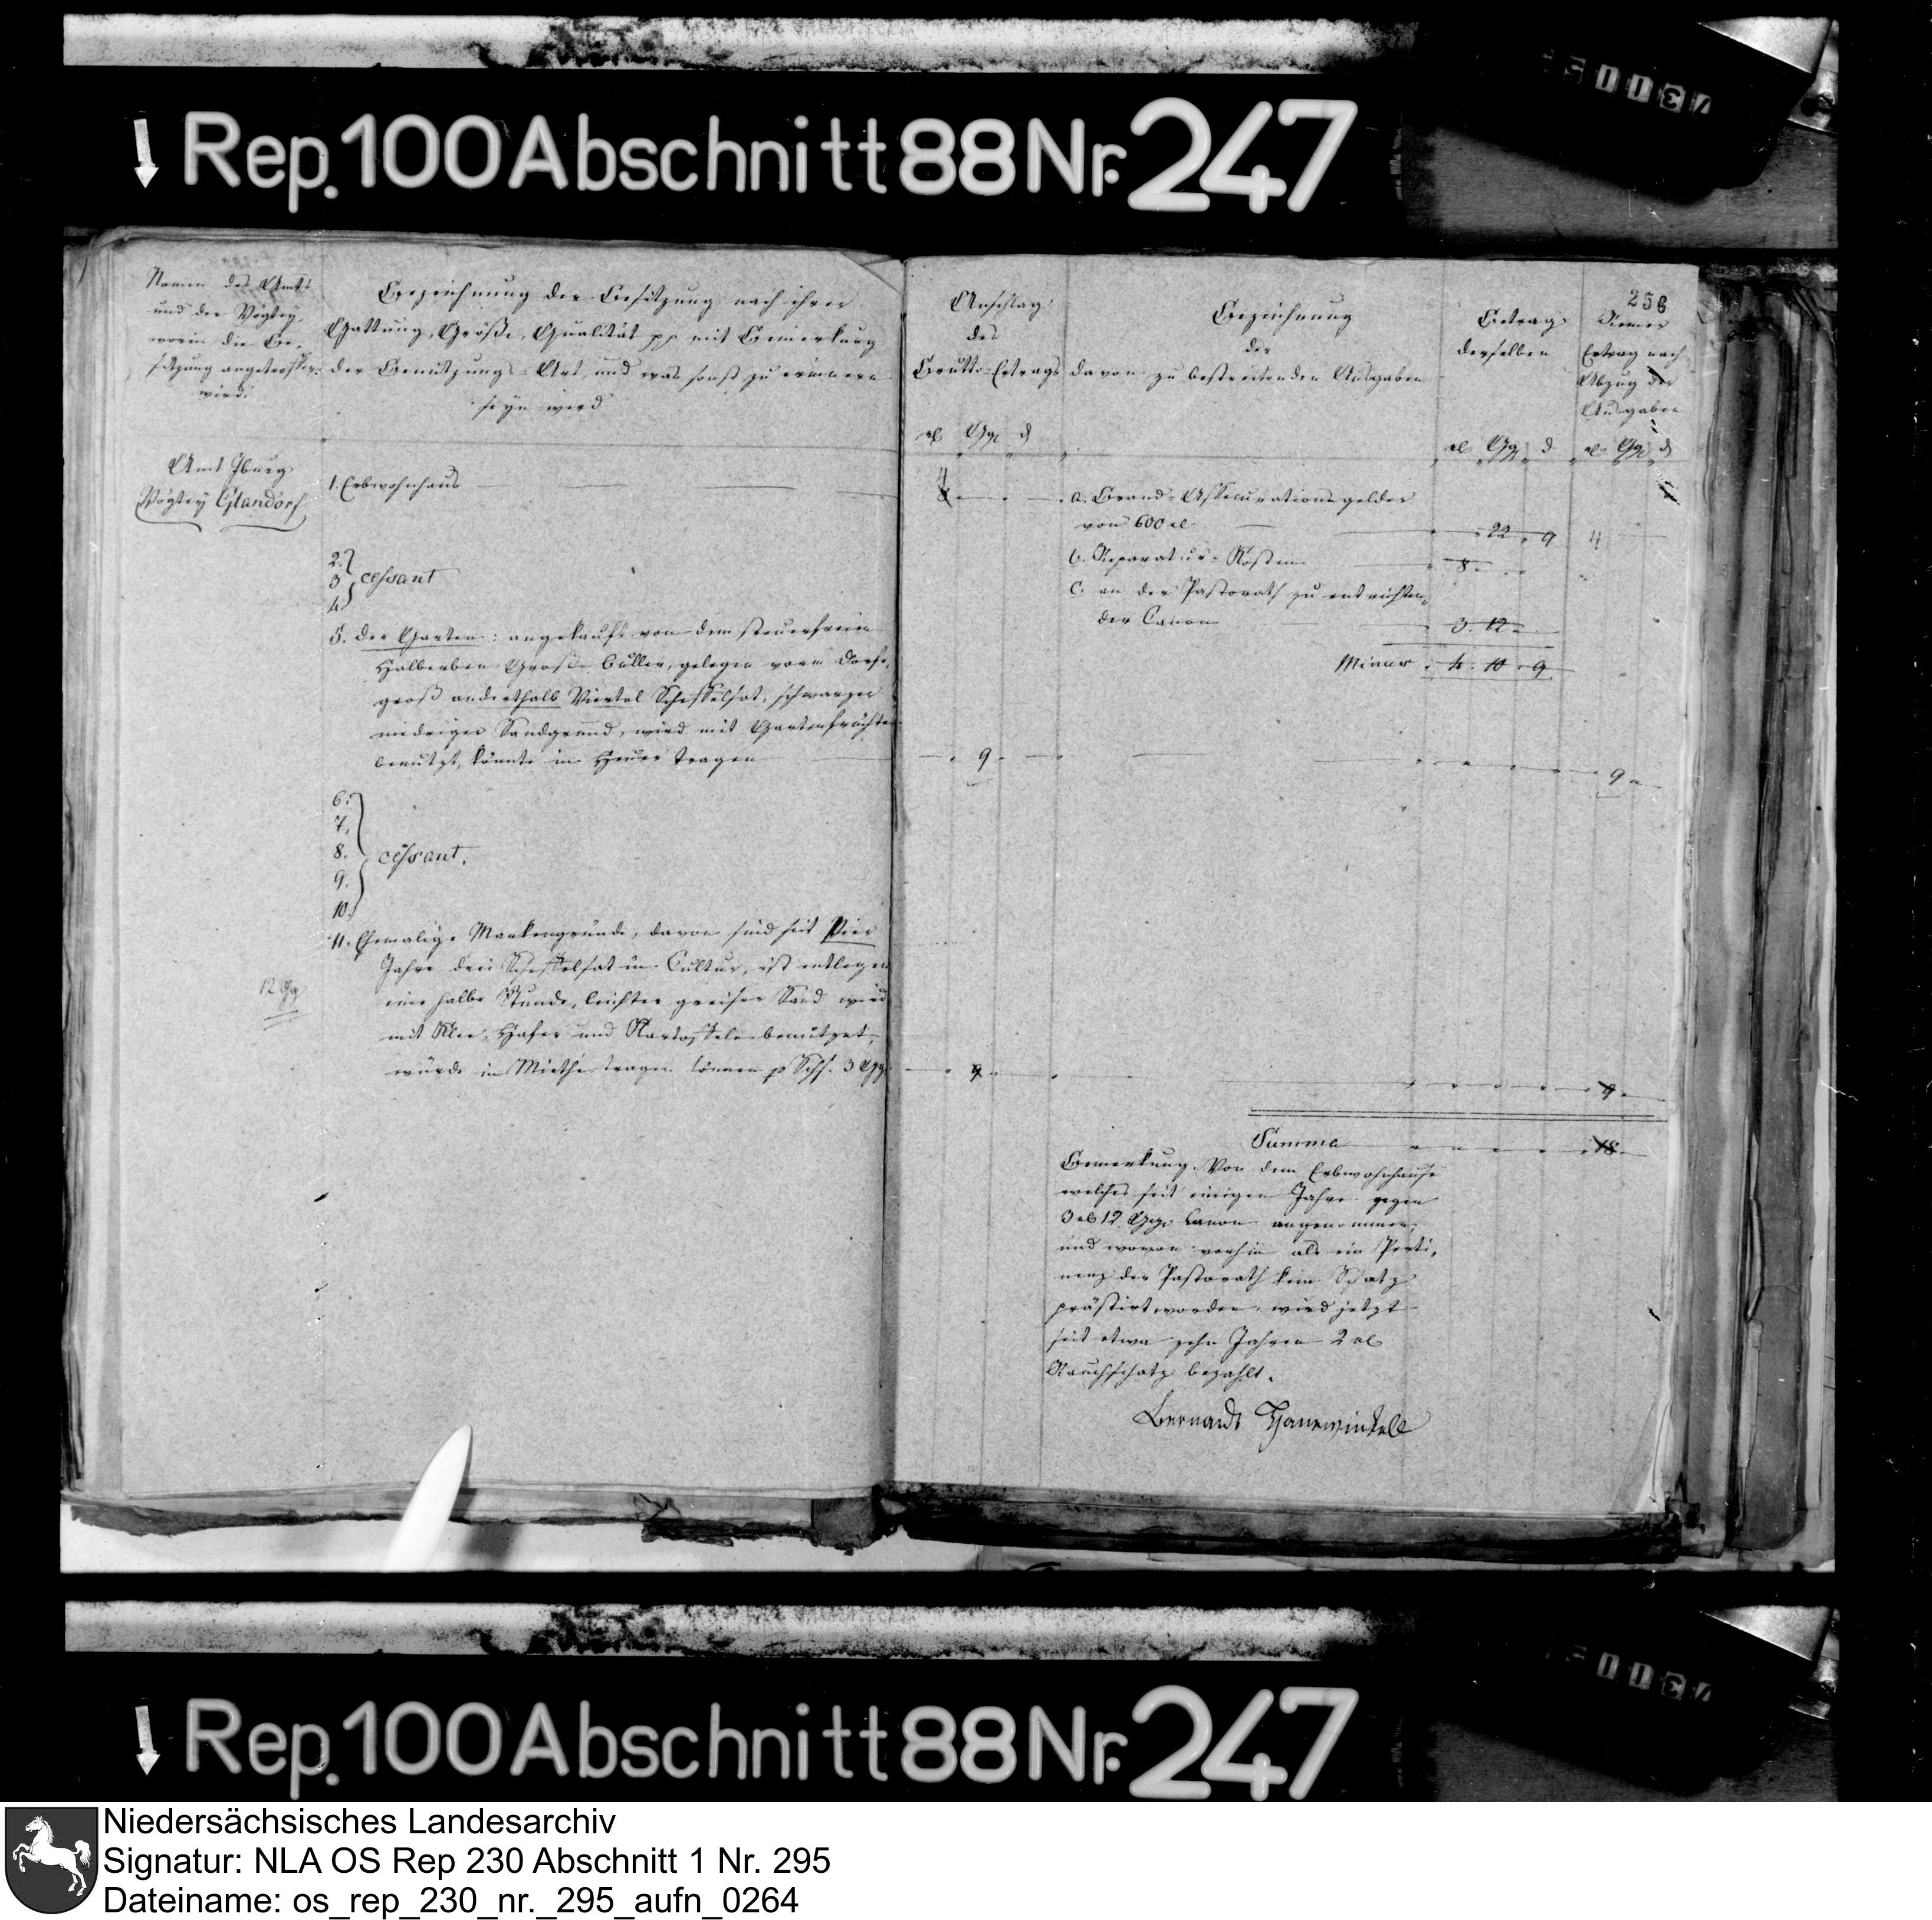 ↓ Rep. 100 Abschnitt 88 Nr. 247
256
Namen des Amts
und der Vogtey,
worin die Be-
sitzung angetroffen
wird.
Bezeichnung der Besitzung nach ihrer
Gattung, Größe, Qualität pp mit Bemerkung
der Benutzungs-Art, und was sonst zu erinnern
seyn wird
Anschlag
des
Brutto-Ertrags
rl Ggr d
Bezeichnung
der
davon zu bestreitenden Ausgaben
Betrag
derselben
rl Ggr d
Reiner
Ertrag nach
Abzug der
Ausgaben
rl Ggr d
Amt Iburg
Vogtey Glandorf
1. Erbwohnhaus
a. Brand-Assecurationsgelder
von 600 rl 22 9 4
b. Reparatur-Kosten 8
c. an der Pastorath zu entrichten-
der Canon 3. 12
Minus 4. 10 9
2.
3 cessant
4.
5. Der Garten: angekauft von dem steuerfreien
Halberben Große Buller, gelegen vorm Dorfe,
groß anderthalb Viertel Scheffelsat, schwarzer
niedriger Sandgrund, wird mit Gartenfrüchten
benutzt, könnte in Heuer tragen 9 9
6.
7.
8. cessant.
9.
10.
11. Ehemalige Markengründe, davon sind seit Vier
Jahre drei Scheffelsat in Cultur, ist entlegen
eine halbe Stunde, leichter greiser Sand wird
mit Klee, Hafer und Kartoffeln benutzet,
würde in Miethe tragen können p Schf. 3 Ggr 9 9
12 Ggr
Summa 18
Bemerkung. Von dem Erbwohnhause
welches seit einigen Jahre gegen
3 rl 12 Ggr Canon angenommen,
und wovon vorhin als ein Perti-
nenz der Pastorath kein Schatz
prästirt worden, wird jetzt
seit etwa zehn Jahren 2 rl
Rauchschatz bezahlt.
Bernardt Hanewinkell
↓ Rep. 100 Abschnitt 88 Nr. 247
Niedersächsisches Landesarchiv
Signatur: NLA OS Rep 230 Abschnitt 1 Nr. 295
Dateiname: os_rep_230_nr._295_aufn_0264